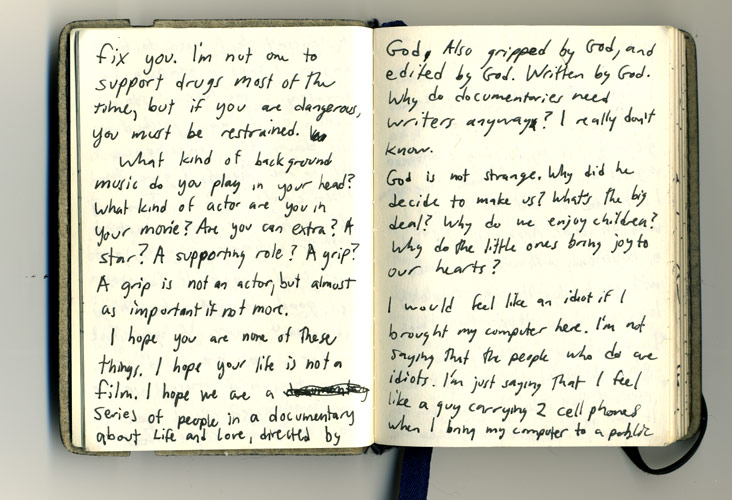 fix you. I'm not one to
support drugs most of the
time, but if you are dangerous,
you must be restrained.
What kind of background
music do you play in your head?
What kind of actor are you in
your movie? Are you can extra? A
star? A supporting role? A grip?
A grip is not an actor, but almost
as important if not more.
I hope you are none of these
things. I hope your life is not a
film. I hope we are a
series of people in a documentary
about Life and Love, directed by
God, Also gripped by God, and
edited by God. Written by God.
Why do documentaries need
writers anyway? I really don't
know.
God is not strange. Why did he
decide to make us? What's the big
deal? Why do we enjoy children?
Why do the little ones bring joy to
our hearts?
I would feel like an idiot if I
brought my computer here. I'm not
saying that the people who do are
idiots. I'm just saying that I feel
like a guy carrying 2 cell phones
when I bring my computer to a public